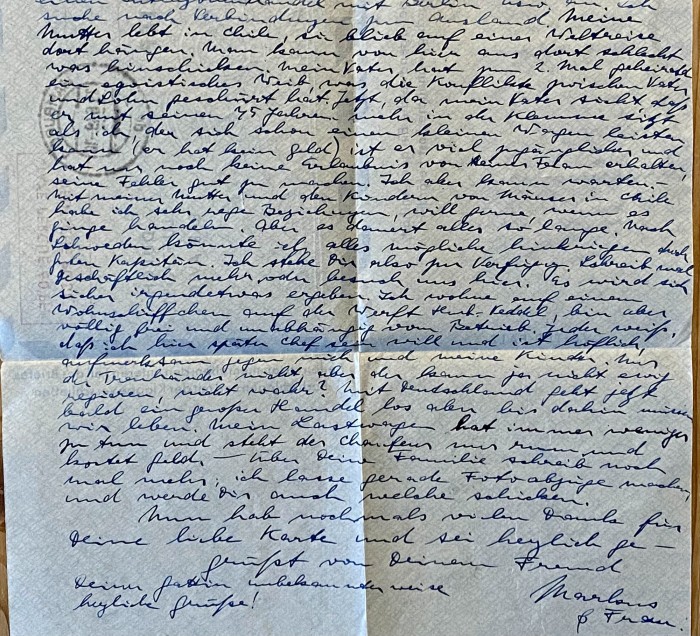 mit Berlin usw. an. Ich
suche nach Verbindungen zum Ausland. Meine
Mutter lebt in Chile, sie blieb auf einer Weltreise
dort hängen. Man kann von hier aus dort schlecht
was hinschicken. Mein Vater hat zum 2. Mal geheiratet
ein egoistisches Weib, was die Konflikte zwischen Vater
und Sohn geschürt hat. Jetzt, da mein Vater sieht daß
er mit seinen 75 Jahren mehr in der Klemme sitzt
als ich, der sich schon einen kleinen Wagen leisten
kann (er hat kein Geld) ist er viel zugänglicher und
hat nur noch keine Erlaubnis von seiner Frau erhalten,
seine Fehler gut zu machen. Ich aber kann warten. –
Mit meiner Mutter und den Kindern von in Chile
habe ich sehr rege Beziehungen, will gerne, wenn es
ginge handeln. Aber es dauert alles so lange. Nach
Schweden könnte ich alles mögliche hinkriegen durch
guten Kapitän. Ich stehe Dir also zur Verfügung. Schreib mal
geschäftlich mehr oder besuch uns hier. Es wird sich
sicher irgendetwas ergeben. Ich wohne auf einem
Wohnschiffchen auf der Werft bin aber
völlig frei und unabhängig vom Betrieb. Jeder weiß,
daß ich hier später Chef sein will und ist höflich,
aufmerksam gegen mich und meine Kinder. Nur
der Treuhänder nicht, aber der kann ja nicht ewig
regieren, nicht wahr? Mit Deutschland geht jetzt
bald ein großer Handel los aber bis dahin müssen
wir leben. Mein Lastwagen hat immer weniger
zu tun und steht der Chauffeur nur rum und
kostet Geld. — Über Deine Familie schreib noch
mal mehr, ich lasse gerade Fotoabzüge machen
und werde Dir auch welche schicken.
Nun hab nochmals vielen Dank für
Deine liebe Karte und sei herzlich ge-
grüßt von Deinem Freund
Deiner Gattin unbekannterweise
herzliche Grüße!
Markus
& Frau.